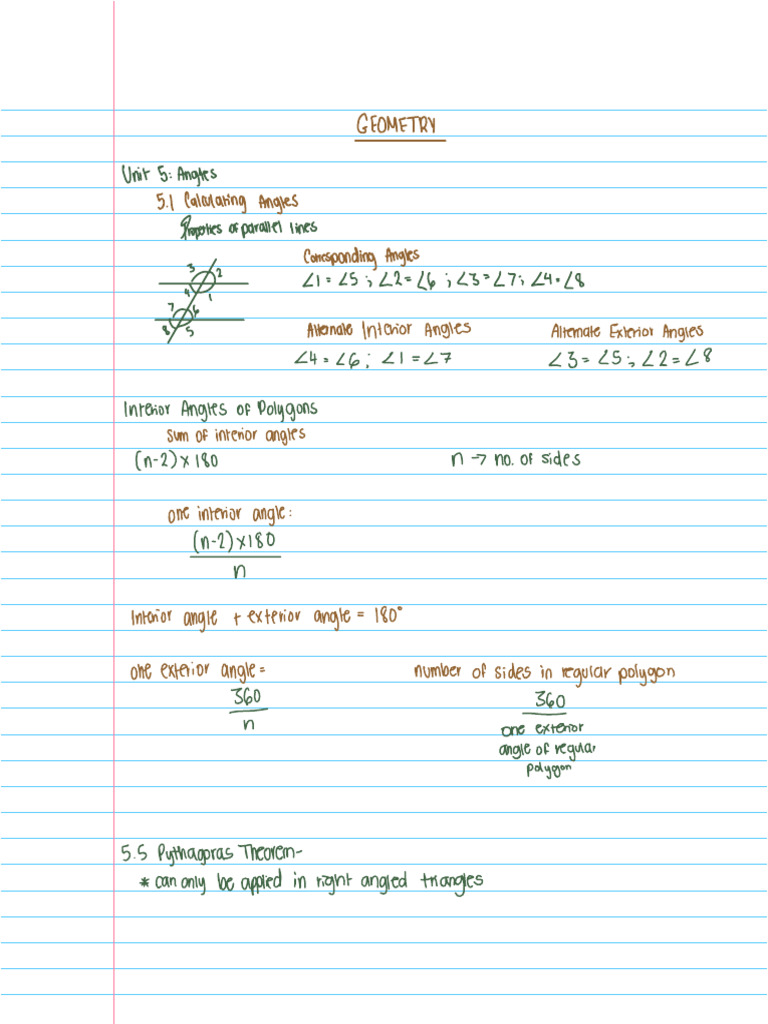 GEOMETRY
Unit 5: Angles
5.1 Calculating Angles
Properties of parallel lines
Corresponding Angles
∠1 = ∠5 ; ∠2 = ∠6 ; ∠3 = ∠7 ; ∠4 = ∠8
3 2
4 1
7 6
8 5
Alternate Interior Angles
∠4 = ∠6 ; ∠1 = ∠7
Alternate Exterior Angles
∠3 = ∠5 ; ∠2 = ∠8
Interior Angles of Polygons
Sum of interior angles
(n-2) x 180
n → no. of sides
one interior angle:
(n-2) x 180
n
Interior angle + exterior angle = 180°
one exterior angle =
360
n
number of sides in regular polygon
360
one exterior
angle of regular
polygon
5.5 Pythagoras Theorem-
* can only be applied in right angled triangles